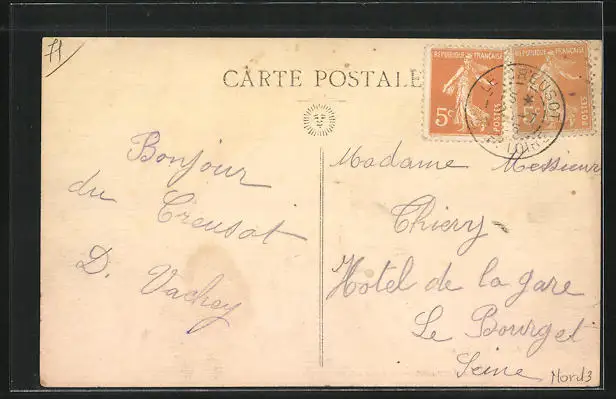 71
CARTE POSTALE
Bonjour
du Creusot
D. Vachey
REPUBLIQUE FRANÇAISE
5c
POSTES
REPUBLIQUE FRANÇAISE
5c
POSTES
LE CREUSOT
LOIRE
Madame Messieur
Thiery
Hotel de la gare
Le Bourget
Seine